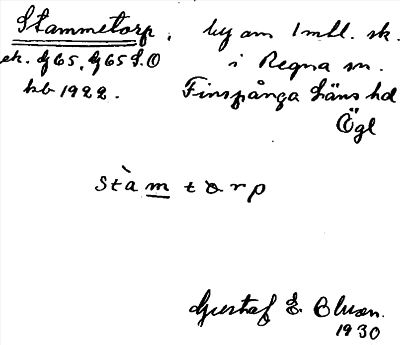 Stammetorp, by om 1 mtl. sk.
ek. dg 65, dg 65 S.O i Regna sn.
hb 1922. Finspånga läns hd
Ögl
stàm torp
Gustaf E. Olson.
1930